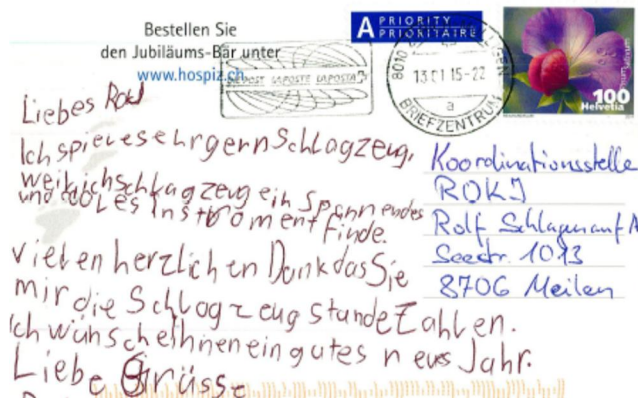 Bestellen Sie
den Jubiläums-Bär unter
www.hospiz.ch
A PRIORITY
PRIORITAIRE
DIE POST LA POSTE LA POSTA
8010
13.01.15-22
a
BRIEFZENTRUM
100
Helvetia
Liebes Roki
Ich spiele sehr gern Schlagzeug,
weil ich schlagzeug ein spannendes
und cooles Instroment finde.
vielen herzlichen Dank das Sie
mir die Schlagzeugstunde Zahlen.
Ich wünsche Ihnen ein gutes neues Jahr.
Liebe Grüsse
Koordinationsstelle
ROKJ
Rolf Schlagenauf A
Seestr. 1013
8706 Meilen